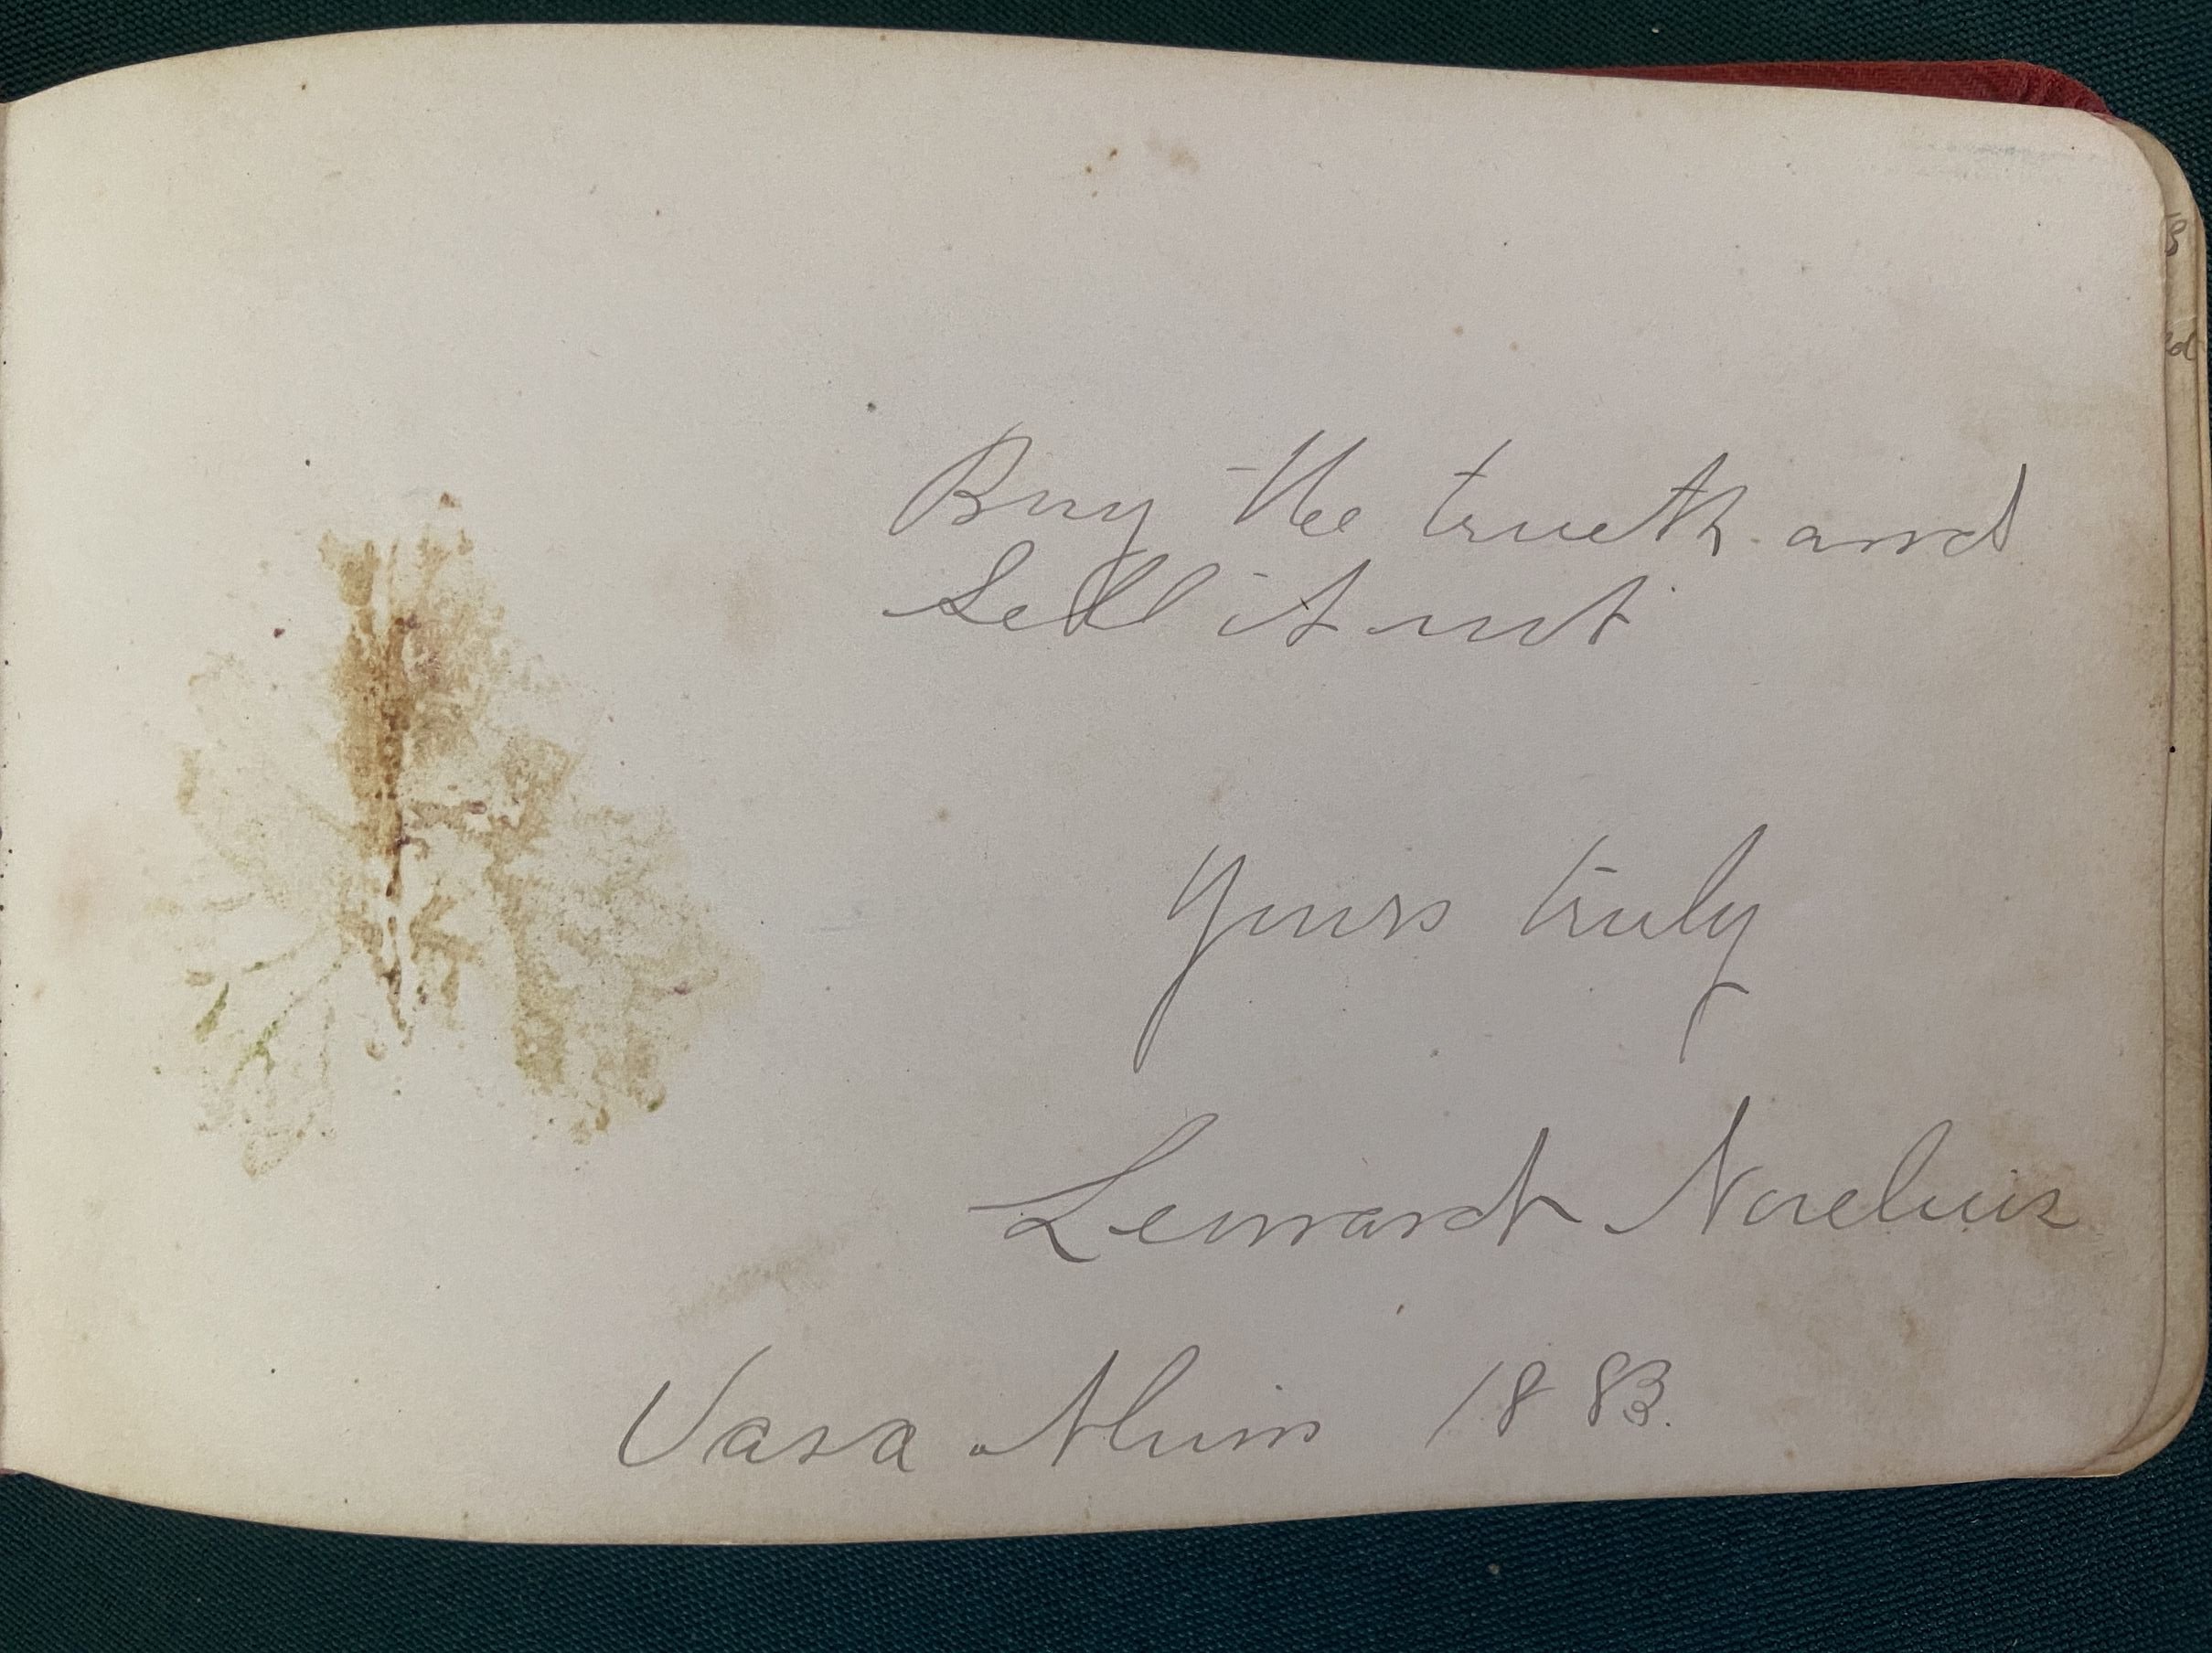 Buy the trueth and
Sell it not
Yours truly
Lennardt Norelius
Vasa Minn 1883.